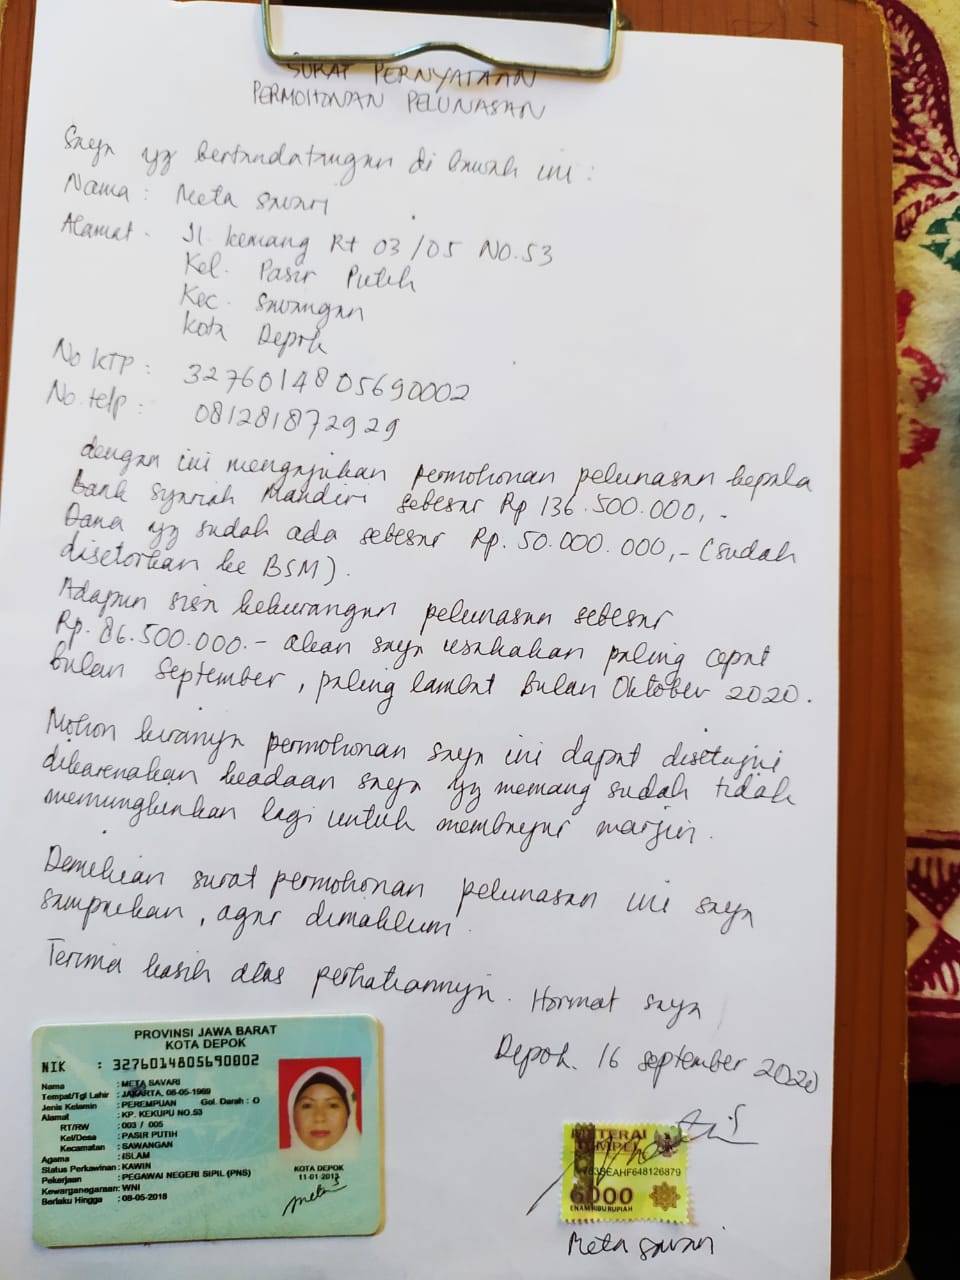 SURAT PERNYATAAN
PERMOHONAN PELUNASAN
Saya yg bertandatangan di bawah ini :
Nama : Meta Savari
Alamat . Jl. Kemang Rt 03/05 NO.53
Kel. Pasir Putih
Kec. Sawangan
Kota Depok
No KTP : 3276014805690002
No. telp : 081281872929
dengan ini mengajukan permohonan pelunasan kepada
Bank Syariah Mandiri sebesar Rp 136.500.000,-
Dana yg sudah ada sebesar Rp. 50.000.000,- (sudah
disetorkan ke BSM).
Adapun sisa kekurangan pelunasan sebesar
Rp. 86.500.000.- akan saya usahakan paling cepat
bulan September, paling lambat bulan Oktober 2020.
Mohon kiranya permohonan saya ini dapat disetujui
dikarenakan keadaan saya yg memang sudah tidak
memungkinkan lagi untuk membayar marjin.
Demikian surat permohonan pelunasan ini saya
sampaikan, agar dimaklum.
Terima kasih atas perhatiannya. Hormat saya
Depok. 16 September 2020
PROVINSI JAWA BARAT
KOTA DEPOK
NIK : 3276014805690002
Nama : META SAVARI
Tempat/Tgl Lahir : JAKARTA, 08-05-1969
Jenis Kelamin : PEREMPUAN Gol. Darah : O
Alamat : KP. KEKUPU NO.53
RT/RW : 003 / 005
Kel/Desa : PASIR PUTIH
Kecamatan : SAWANGAN
Agama : ISLAM
Status Perkawinan : KAWIN
Pekerjaan : PEGAWAI NEGERI SIPIL (PNS)
Kewarganegaraan : WNI
Berlaku Hingga : 08-05-2018
KOTA DEPOK
11-01-2013
METERAI
TEMPEL
6000
ENAM RIBU RUPIAH
Meta Savari